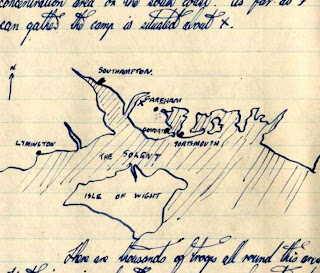 concentration area on the south coast. As far as I
can gather the camp is situated about X.
N
SOUTHAMPTON.
FAREHAM
X
GOSPORT
PORTSMOUTH
LYMINGTON
THE SOLENT
ISLE OF WIGHT
There are thousands of troops all round this area